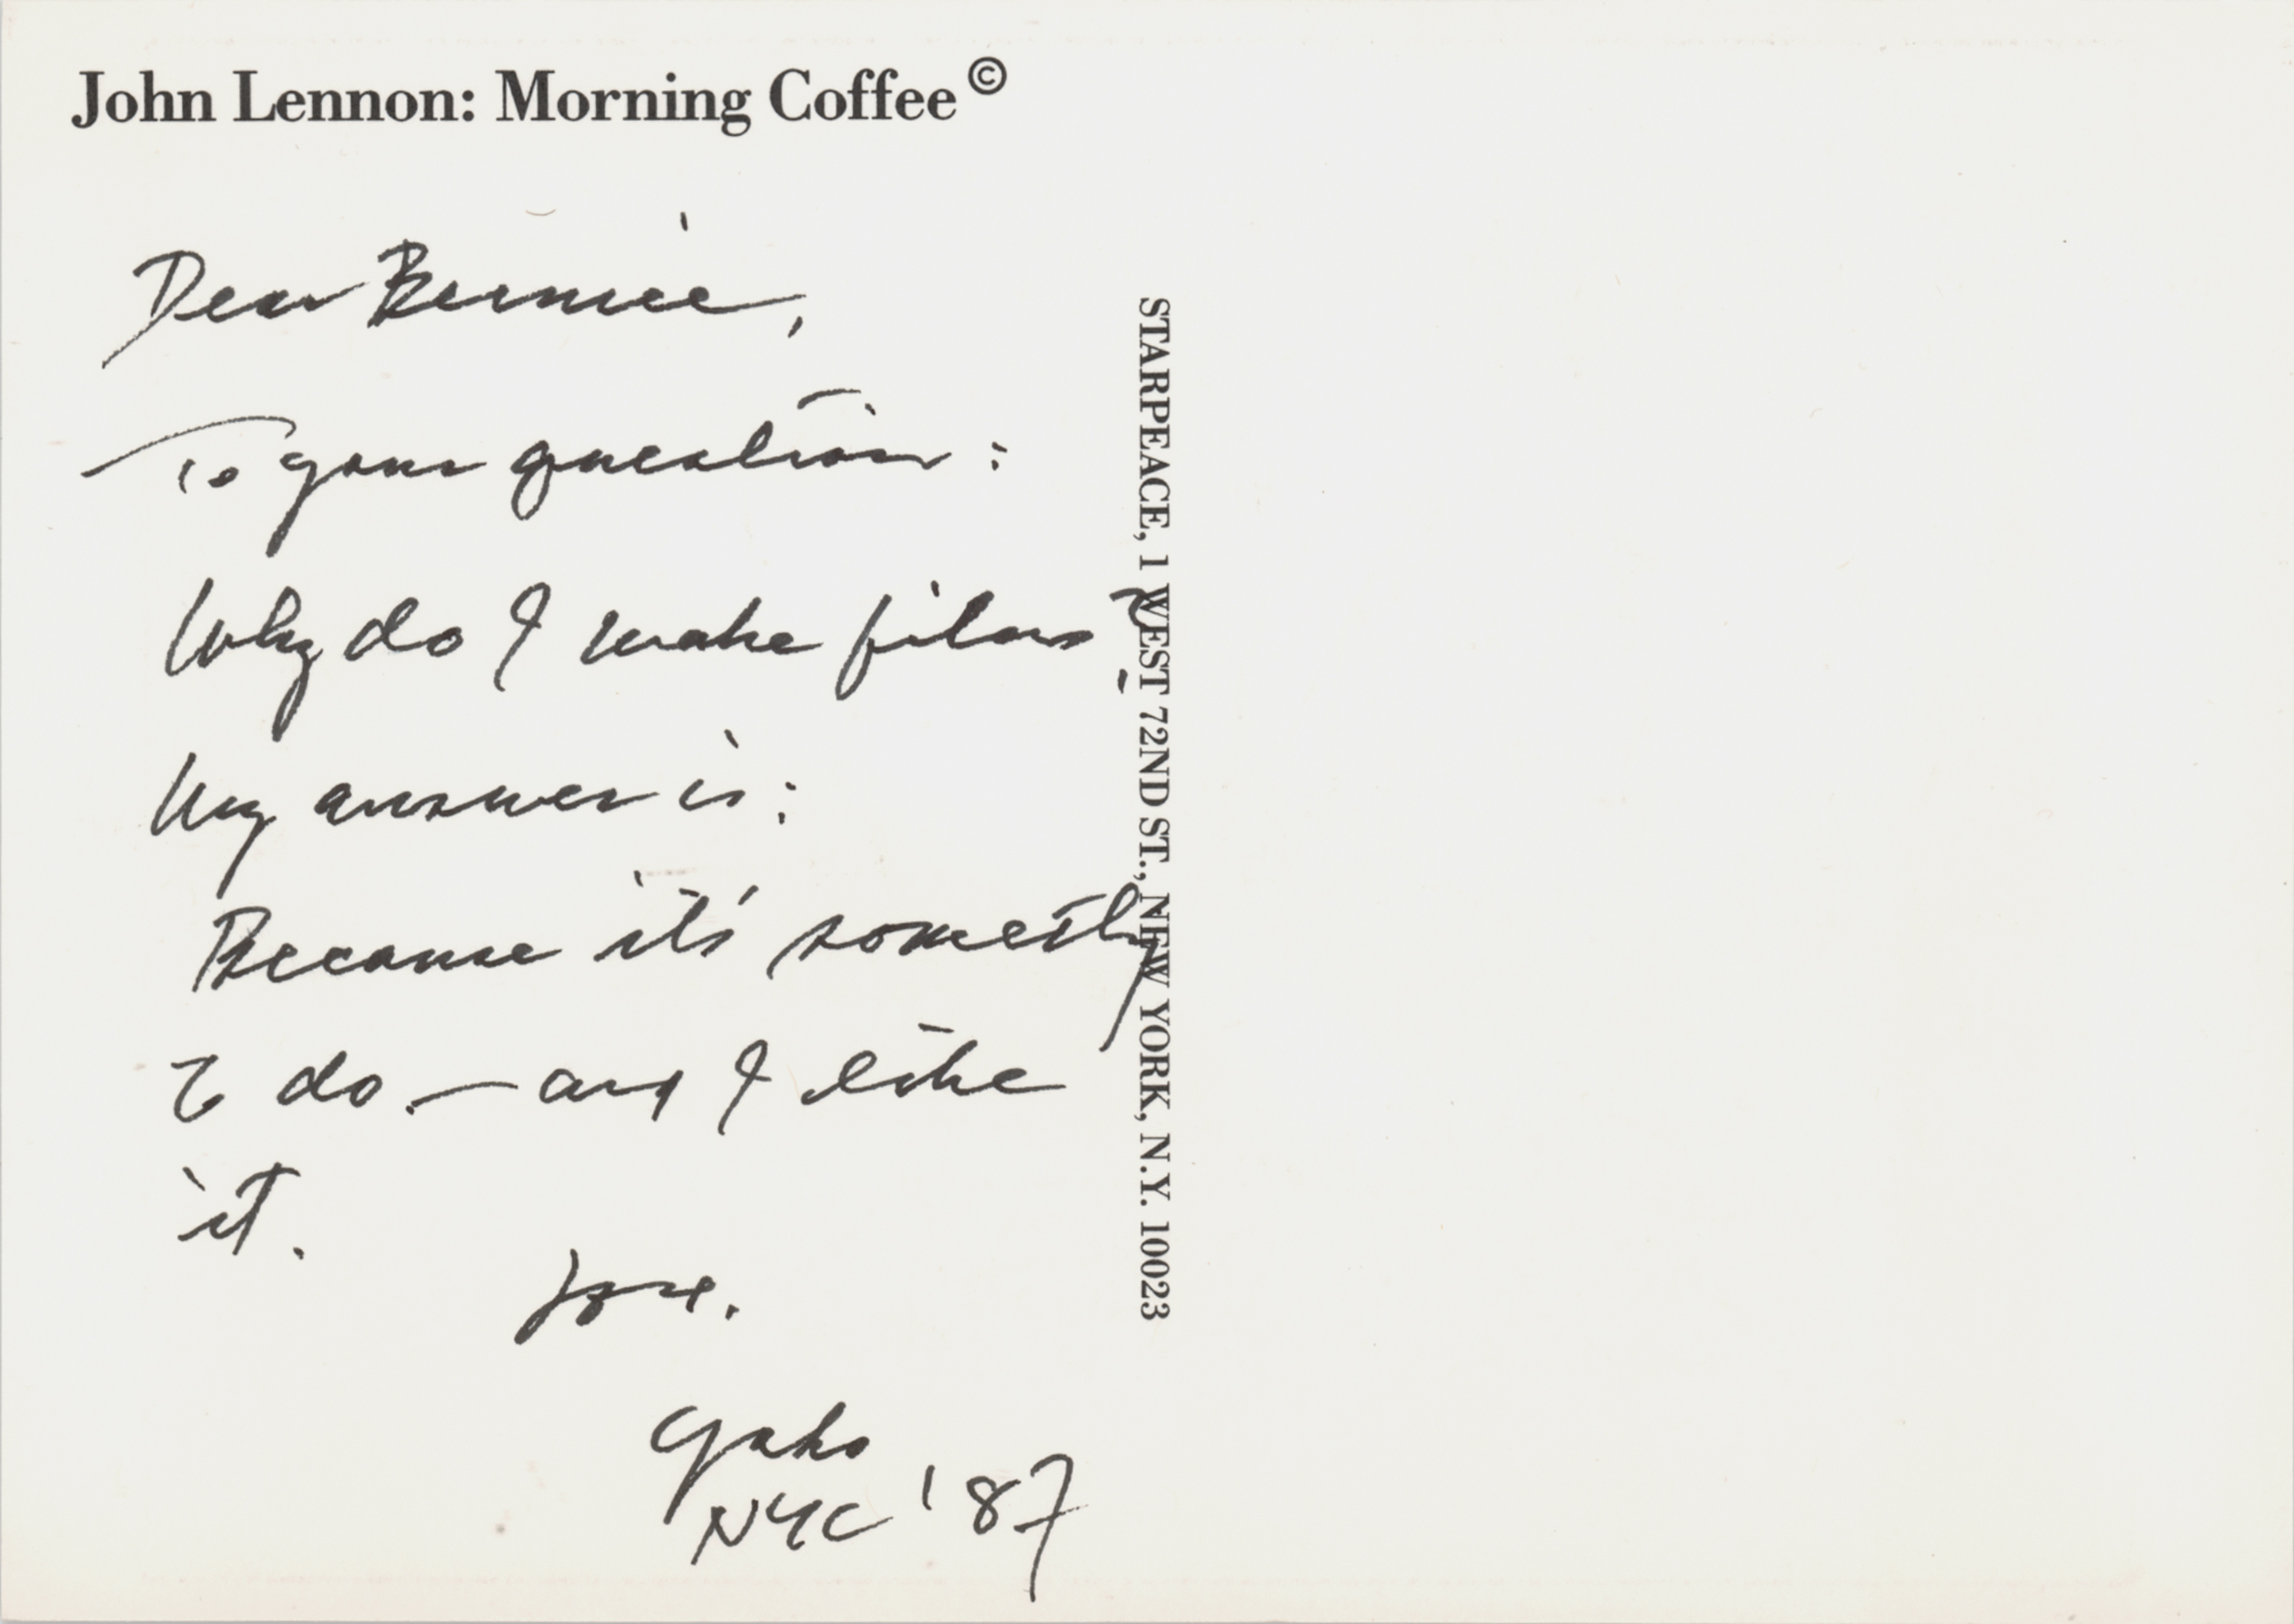 John Lennon: Morning Coffee©
Dear Bernice,
To your question:
Why do I make films?
My answer is:
Because it's something
to do. — and I like
it.
love.
Yoko
NYC '87
STARPEACE, 1 WEST 72ND ST., NEW YORK, N.Y. 10023